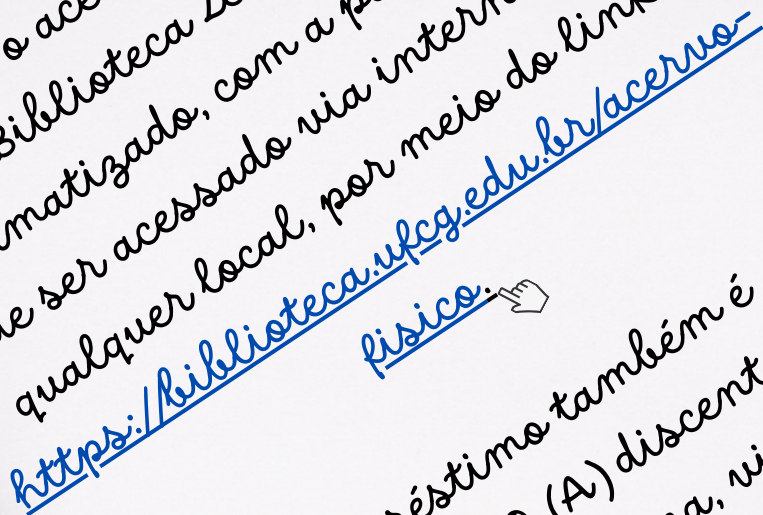 o
Biblioteca
matizado, com a
ser acessado via
qualquer local, por meio do link
https://biblioteca.ufcg.edu.br/acervo-
fisico.
também é
(A) discent